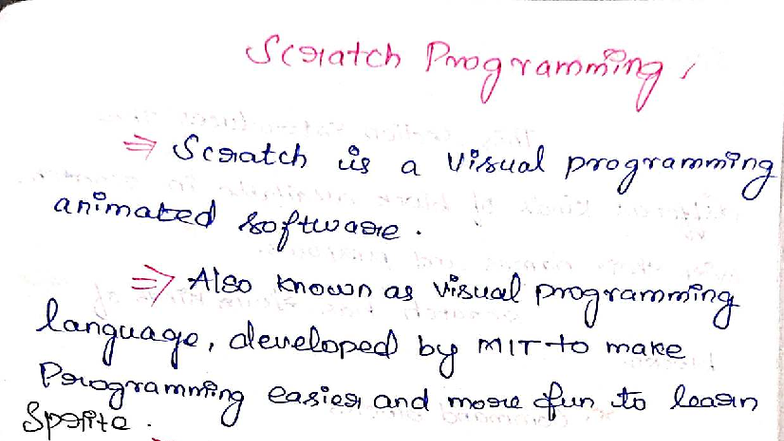 Scratch Programming,
⇒ Scratch is a visual programming
animated software.
⇒ Also known as visual programming
language, developed by MIT to make
Programming easier and more fun to learn
Sprite.